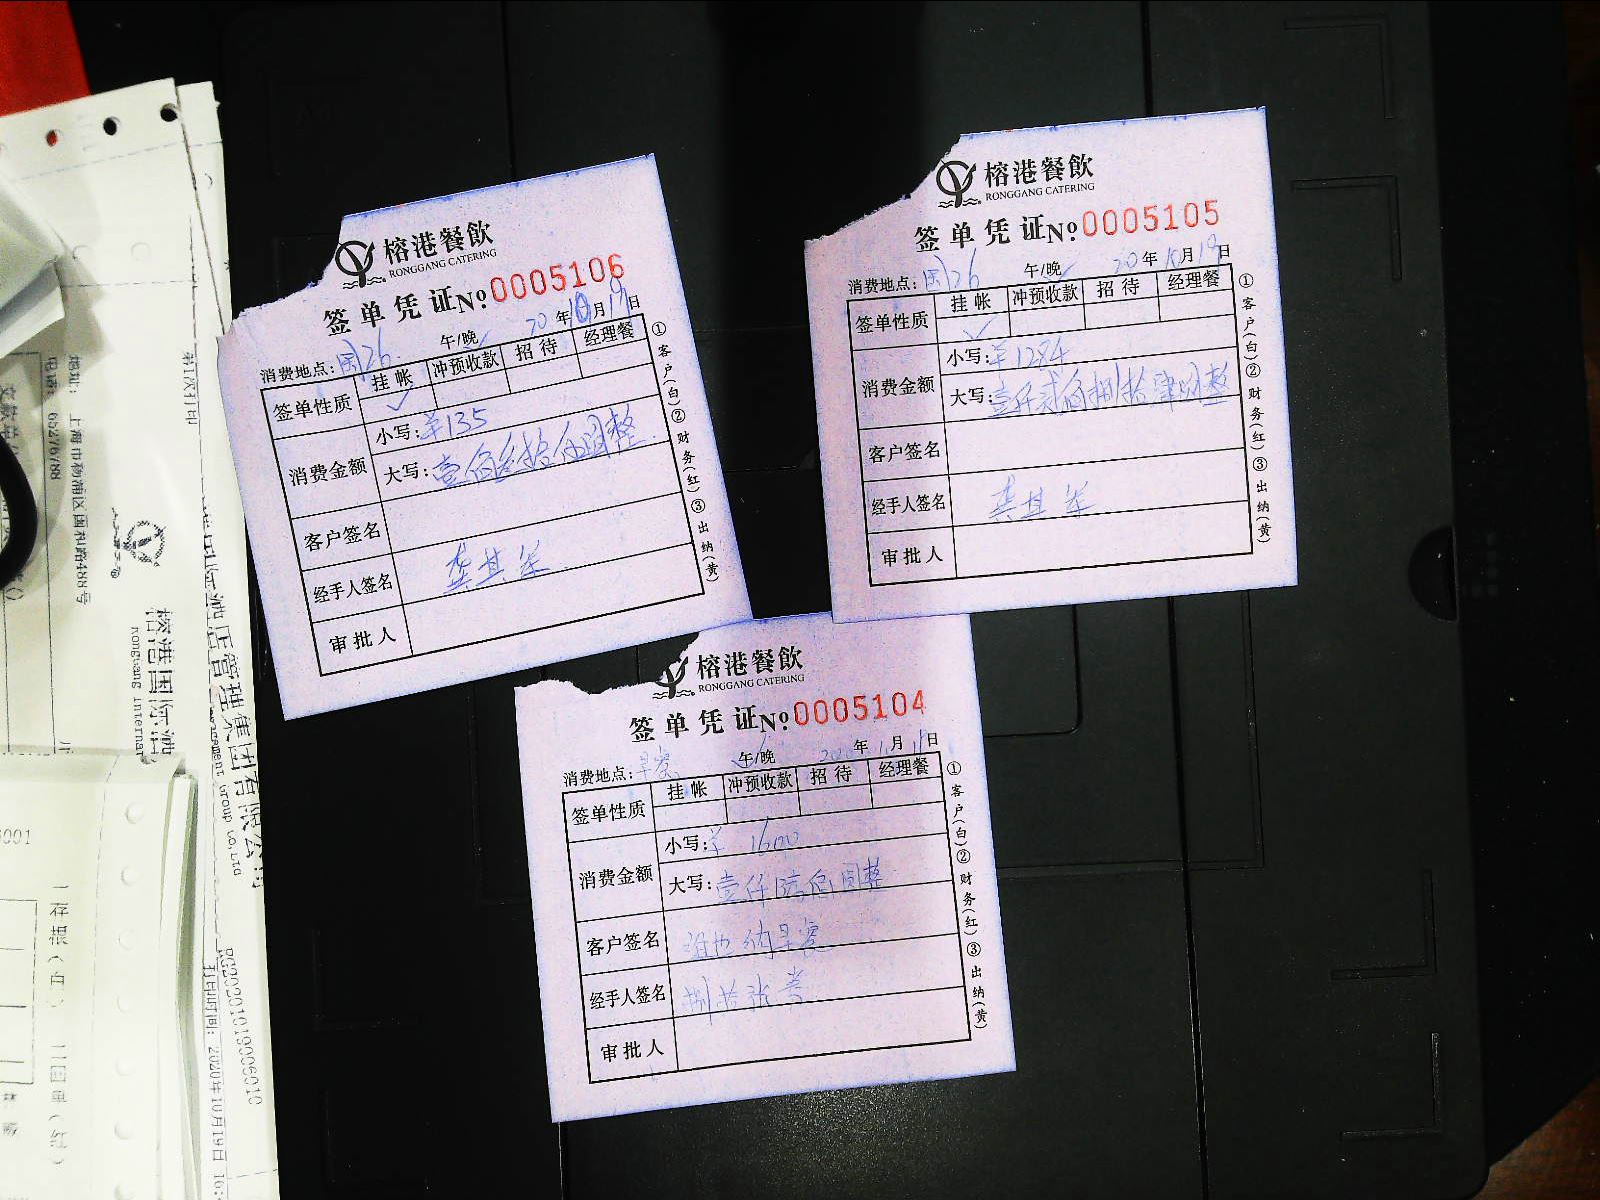 榕港餐飲
RONGGANG CATERING
签单凭证№0005106
消费地点: 国26 午/晚 20年10月19日
签单性质 挂帐 冲预收款 招待 经理餐
✓
消费金额 小写: ¥135
大写: 壹佰叁拾伍圆整
客户签名
经手人签名 龚其军
审批人
①客户(白)②财务(红)③出纳(黄)
榕港餐飲
RONGGANG CATERING
签单凭证№0005105
消费地点: 国26 午/晚 20年10月19日
签单性质 挂帐 冲预收款 招待 经理餐
✓
消费金额 小写: ¥1284
大写: 壹仟贰佰捌拾肆圆整
客户签名
经手人签名 龚其军
审批人
①客户(白)②财务(红)③出纳(黄)
榕港餐飲
RONGGANG CATERING
签单凭证№0005104
消费地点: 早餐 午/晚 年 月 日
签单性质 挂帐 冲预收款 招待 经理餐
消费金额 小写: ¥1600
大写: 壹仟陆佰圆整
客户签名 维也纳早餐
经手人签名 捌拾张券
审批人
①客户(白)②财务(红)③出纳(黄)
第1次打印
地址: 上海市杨浦区国和路488号
电话: 65276788
榕港国际酒
Ronggang Internat
国际酒店管理集团有限公司
ement Group Co,Ltd
RG20201019006010
打印时间: 2020年10月19日 16: